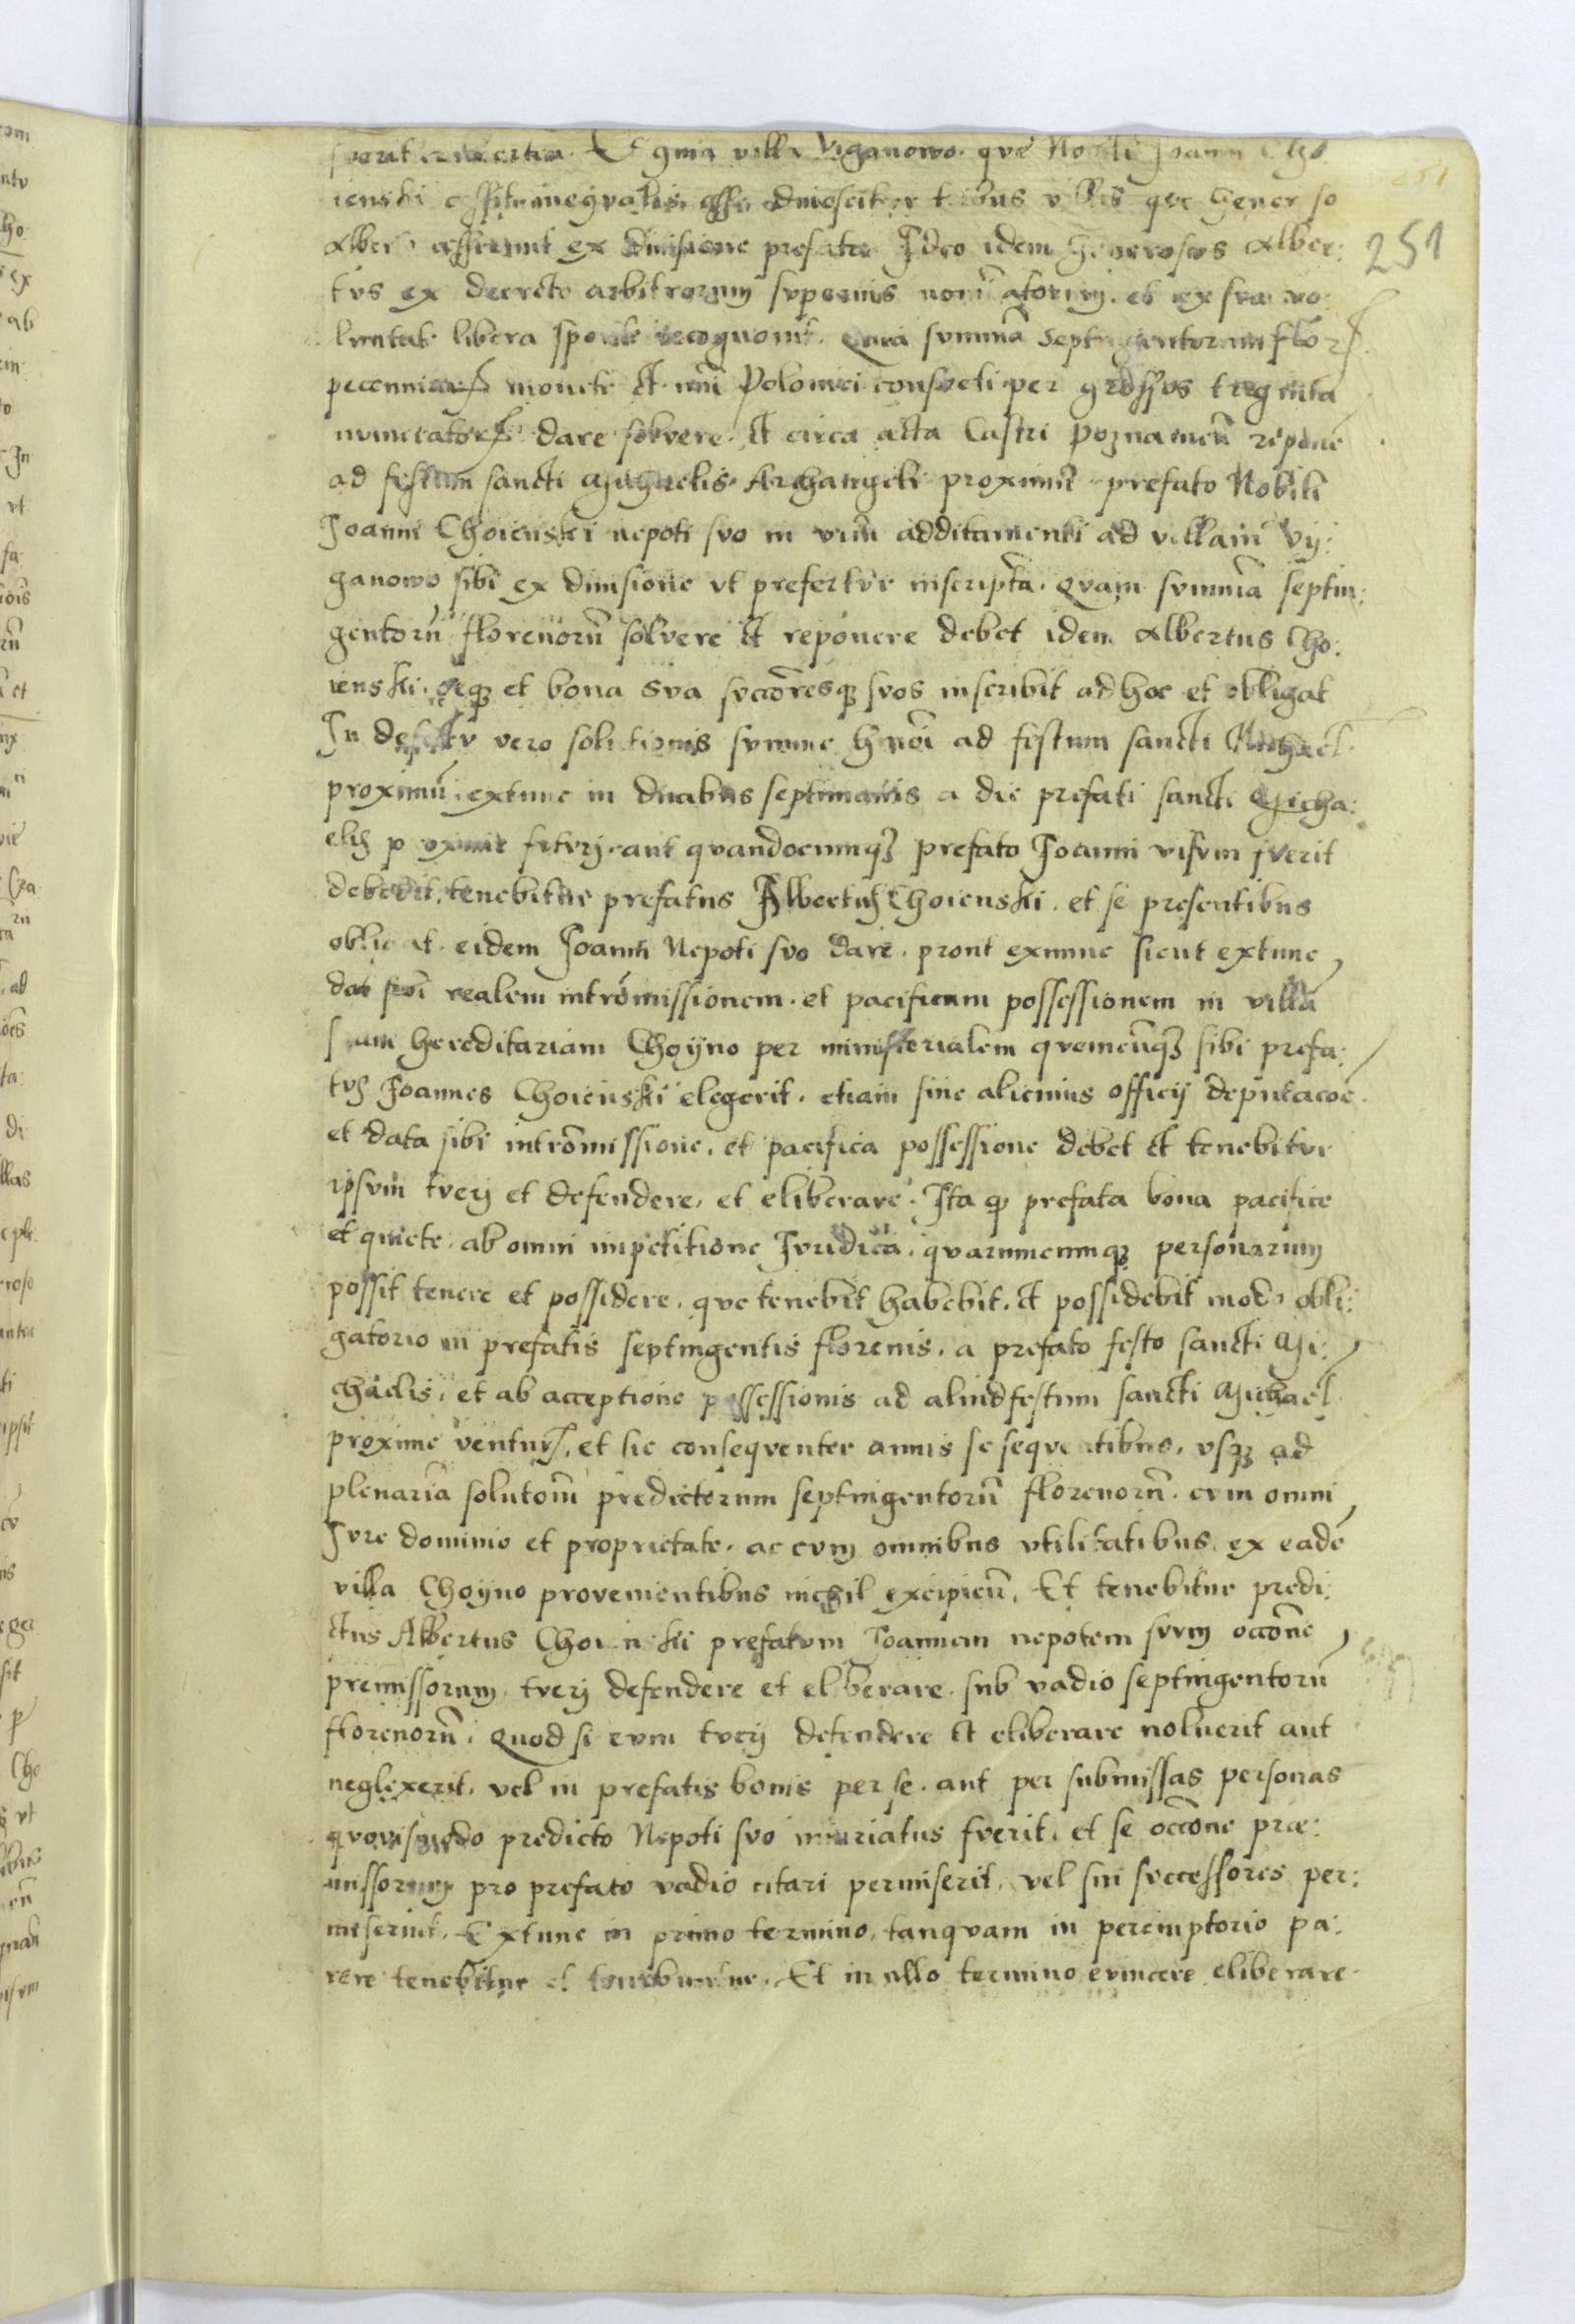 villa Viganowo. que Nobili Joanni Cho
ienski
Alber ex diuisione prefata Ideo idem Generosus Alber:
251
tvs ex decreto arbitrorum svperius et ex sva vo
luntate libera sponte recognouit. Quia svmmã Septingentorum florꝝ
monete et nũi Polonici consveti per grossos triginta
dare solvere. et circa acta Castri Poznanieñ reponẽ
ad festum sancti Michaelis Archangeli proximũ prefato Nobili
Joanni Choienski nepoti svo in vim additamenti ad villam Vy:
ganowo sibi ex diuisione vt prefertvr inscripta. Qvam svmmã septin:
gentorũ florenorũ solvere et reponere debet idem Albertus Cho:
ienski. seqʒ et bona sva svccõresqʒ svos inscribit ad hoc et obligat
In defectv vero solutionis svmme hmõi ad festum sancti Michael
proximũ. extunc in duabus septimanis a die prefati sancti Micha:
elis proxime fvtvrj. aut qvandocunqʒ prefato Joanni visvm fverit
debebit, tenebitur prefatus Albertus Choienski. et se presentibus
obligat. eidem Joanni Nepoti svo dare. prout exnunc sicut extunc
dat realem intrõmissionem. et pacificam possessionem in villã
svam hereditariam Choyno per ministerialem qvemcũqʒ sibi prefa:
tvs Joannes Choienski elegerit. etiam sine alicuius officij deputacõe
et data sibi intrõmissione. et pacifica possessione debet et tenebitvr
ipsvm tverj et defendere, et eliberare. Ita qʒ prefata bona pacifice
et quiete. ab omni impetitione Jvridica. qvarumcunqʒ personarum
possit tenere et possidere. qve tenebit habebit. et possidebit modo obli:
gatorio in prefatis septingentis florenis. a prefato festo sancti Mi:
chaelis. et ab acceptione possessionis ad aliud festum sancti Michael
proxime ventur, et sic conseqventer annis se seqventibus. vsqʒ ad
plenariã solutoĩũ predictorum septingentorũ florenorũ. cvm omni
Jvre dominio et proprietate. ac cvm omnibus vtilitatibus. ex eadẽ
villa Choyno provenientibus nichil excipieñ. Et tenebitur predi:
ctus Albertus Choienski prefatvm Joannem nepotem svvm occõne
premissorum. tverj defendere et eliberare. sub vadio septingentorũ
florenorũ. Quod si evm tverj defendere et eliberare nolverit aut
neglexerit. vel in prefatis bonis per se. aut per submissas personas
qvovismodo predicto Nepoti svo iniuriatus fverit. et se occõne præ:
missorum pro prefato vadio citari permiserit. vel sui svccessores per:
miserint. Extunc in primo termino, tanqvam in peremptorio pa:
rere tenebitur et tenebuntur. Et in ullo termino evincere eliberare